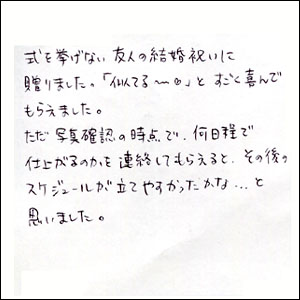 式を挙げない友人の結婚祝いに
贈りました。「似てる〜☺」と すごく喜んで
もらえました。
ただ 写真確認の時点で、何日程で
仕上がるのかを 連絡してもらえると、その後の
スケジュールが立てやすかったかな…と
思いました。